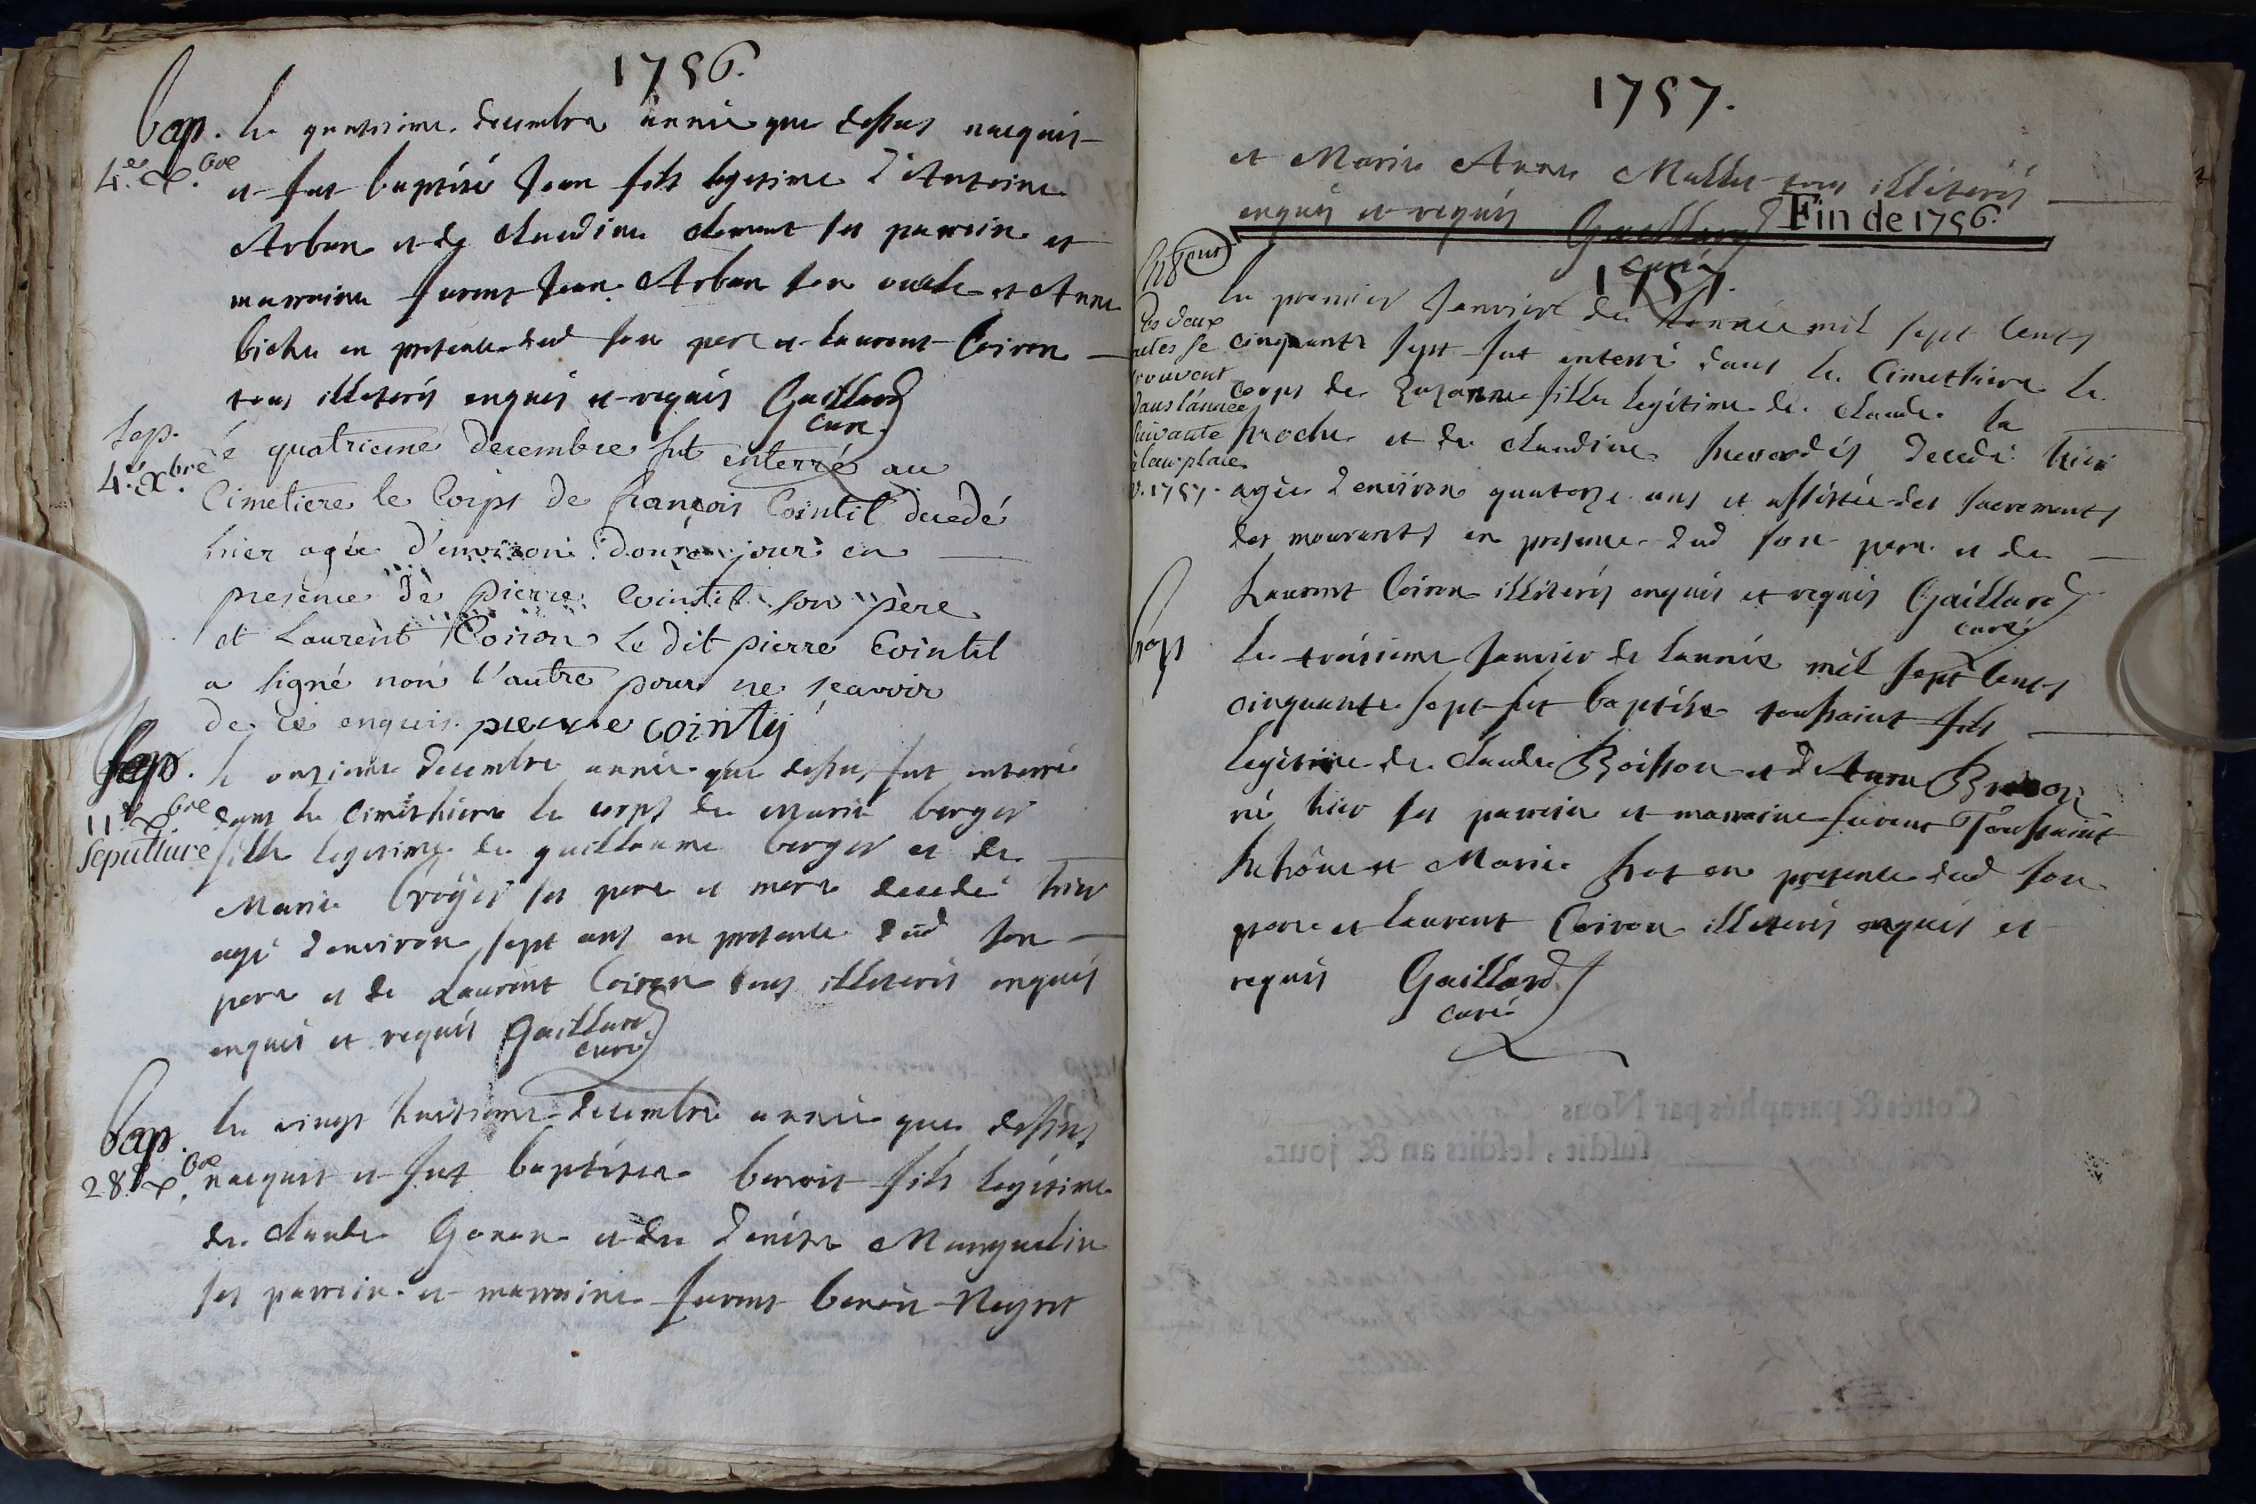 1756.
bap. le quatrieme decembre année que dessus nacquis
4.e X.bre et fut baptisé Jean fils legitime d'Antoine
Arban et de Claudine clement ses parrein et
marraine furent Jean Arban son oncle et Anne
bichu en presence dud son pere et Laurent Coiron
tous illeterés enquis et requis Gaillard
curé
Sep. é quatrieme decembre fut enterré au
4.e X.bre
Cimetiere le Corps de françois Cointil decedé
hier agée d'environ douze jour en
presence de pierre Cointil son père
et Laurent Coiron Le dit pierre Cointil
a signé non l'autre pour ne sçavoir
de ce enquis. pierre cointy
Sep. le onzieme decembre année que dessus fut enterré
11.e X.bre dans le cimethiere le corps de Marie berger
Sepulture fille legitime de guillaume berger et de
Marie Croÿer ses pere et mere decedé hier
agé d'environ sept ans en presence dud son
pere et de Laurent Coiron tous illeterés enquis
enquis et requis Gaillard
curé
bap. le vingt huitieme decembre année que dessus
28.e X.bre nacquit et fut baptisée benoit fils legitime
de claude Gonon et de denise Manguelin
ses parrein et marraine furent benoit Neyret
1757.
et Marie Anne Mallet tous illiterés
enquis et requis Gaillard Fin de 1756.
curé
1757.
Les deux
actes se
trouvent
dans l'année
suivante
à leur place
v. 1757.
le premier Janvier de l'année mil sept cents
cinquante sept fut enterré dans le Cimethiere le
corps de Suzanne fille legitime de claude la
proche et de claudine decedé hier
agée d'environ quatorze ans et assistée des sacrements
des mourants en presence dud son pere et de
Laurent Coiron illiterés enquis et requis Gaillard
curé
bap le troisieme Janvier de l'année mil sept cents
cinquante sept fut baptisé toussaint fils
legitime de claude Boisson et d'Anne
né hier ses parrein et marraine furent Toussaint
et Marie en presence dud son
pere et Laurent Coiron illeterés enquis et
requis Gaillard
curé
Cottés & paraphés par Nous
susdit, lesdits an & jour.